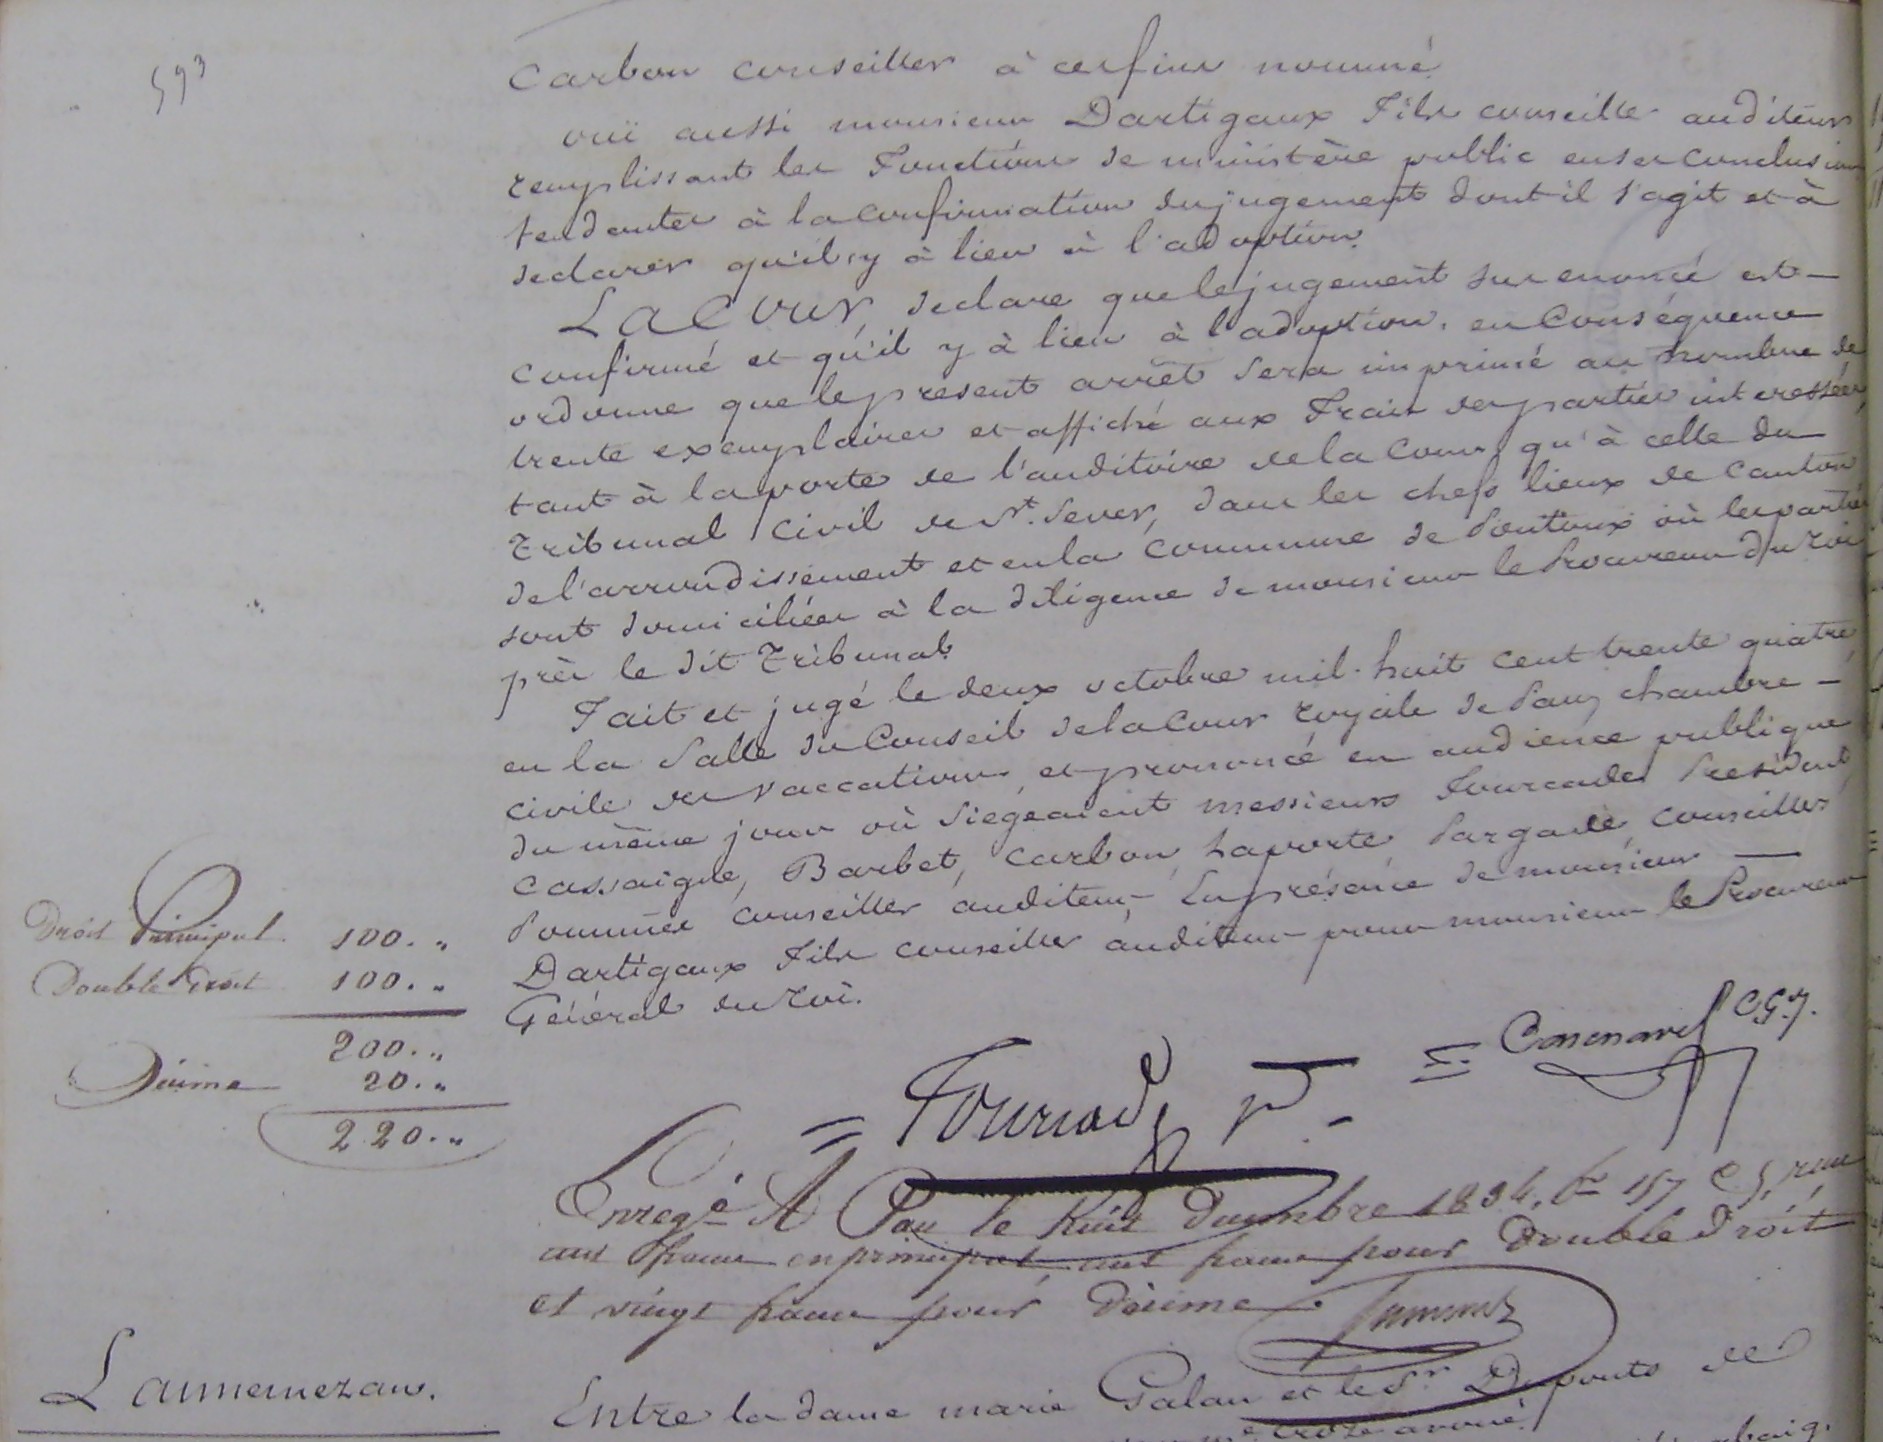 593
Carbon conseiller à ces fins nommé
ouï aussi monsieur Dartigaux Fils conseiller auditeur
remplissant les Fonctions de ministère public en ses conclusions
tendantes à la confirmation du jugement dont il s'agit et à
declarer qu'il y à lieu à l'adoption.
La Cour, declare que le jugement sus enoncé est
confirmé et qu'il y à lieu à l'adoption. en Conséquence
ordonne que le present arrêt sera imprimé au nombre de
trente exemplaires et affiché aux Frais des parties interessées,
tant à la porte de l'auditoire de la Cour, qu'à celle du
Tribunal Civil de St. Sever, dans les chefs lieux de Canton
de l'arrondissement et en la Commune de Pontoux où les parties
sont domiciliées à la diligence de monsieur le Procureur du roi
près le dit Tribunal.
Fait et jugé le deux octobre mil huit cent trente quatre
en la Salle du Conseil de la Cour royale de Pau, chambre
civile des vaccations, et prononcé en audience publique
du même jour où siégeaient messieurs Fourcade President,
Cassaigne, Barbet, Carbon, Laporte Pargade conseillers
Pommiés conseiller auditeur, En présence de monsieur
Dartigaux Fils conseiller auditeur pour monsieur le Procureur
Général du roi.
Droit Principal 100. "
Double Droit 100. "
200. "
Décime 20. "
220. "
Fourcade P.
Casenave
Enregé A Pau le huit Decembre 1834. fo 157
cent francs en principal, cent francs pour Double Droit
et vingt francs pour Décime.
Lannemezan.
Entre la dame marie Galan et le Sr Duponts de